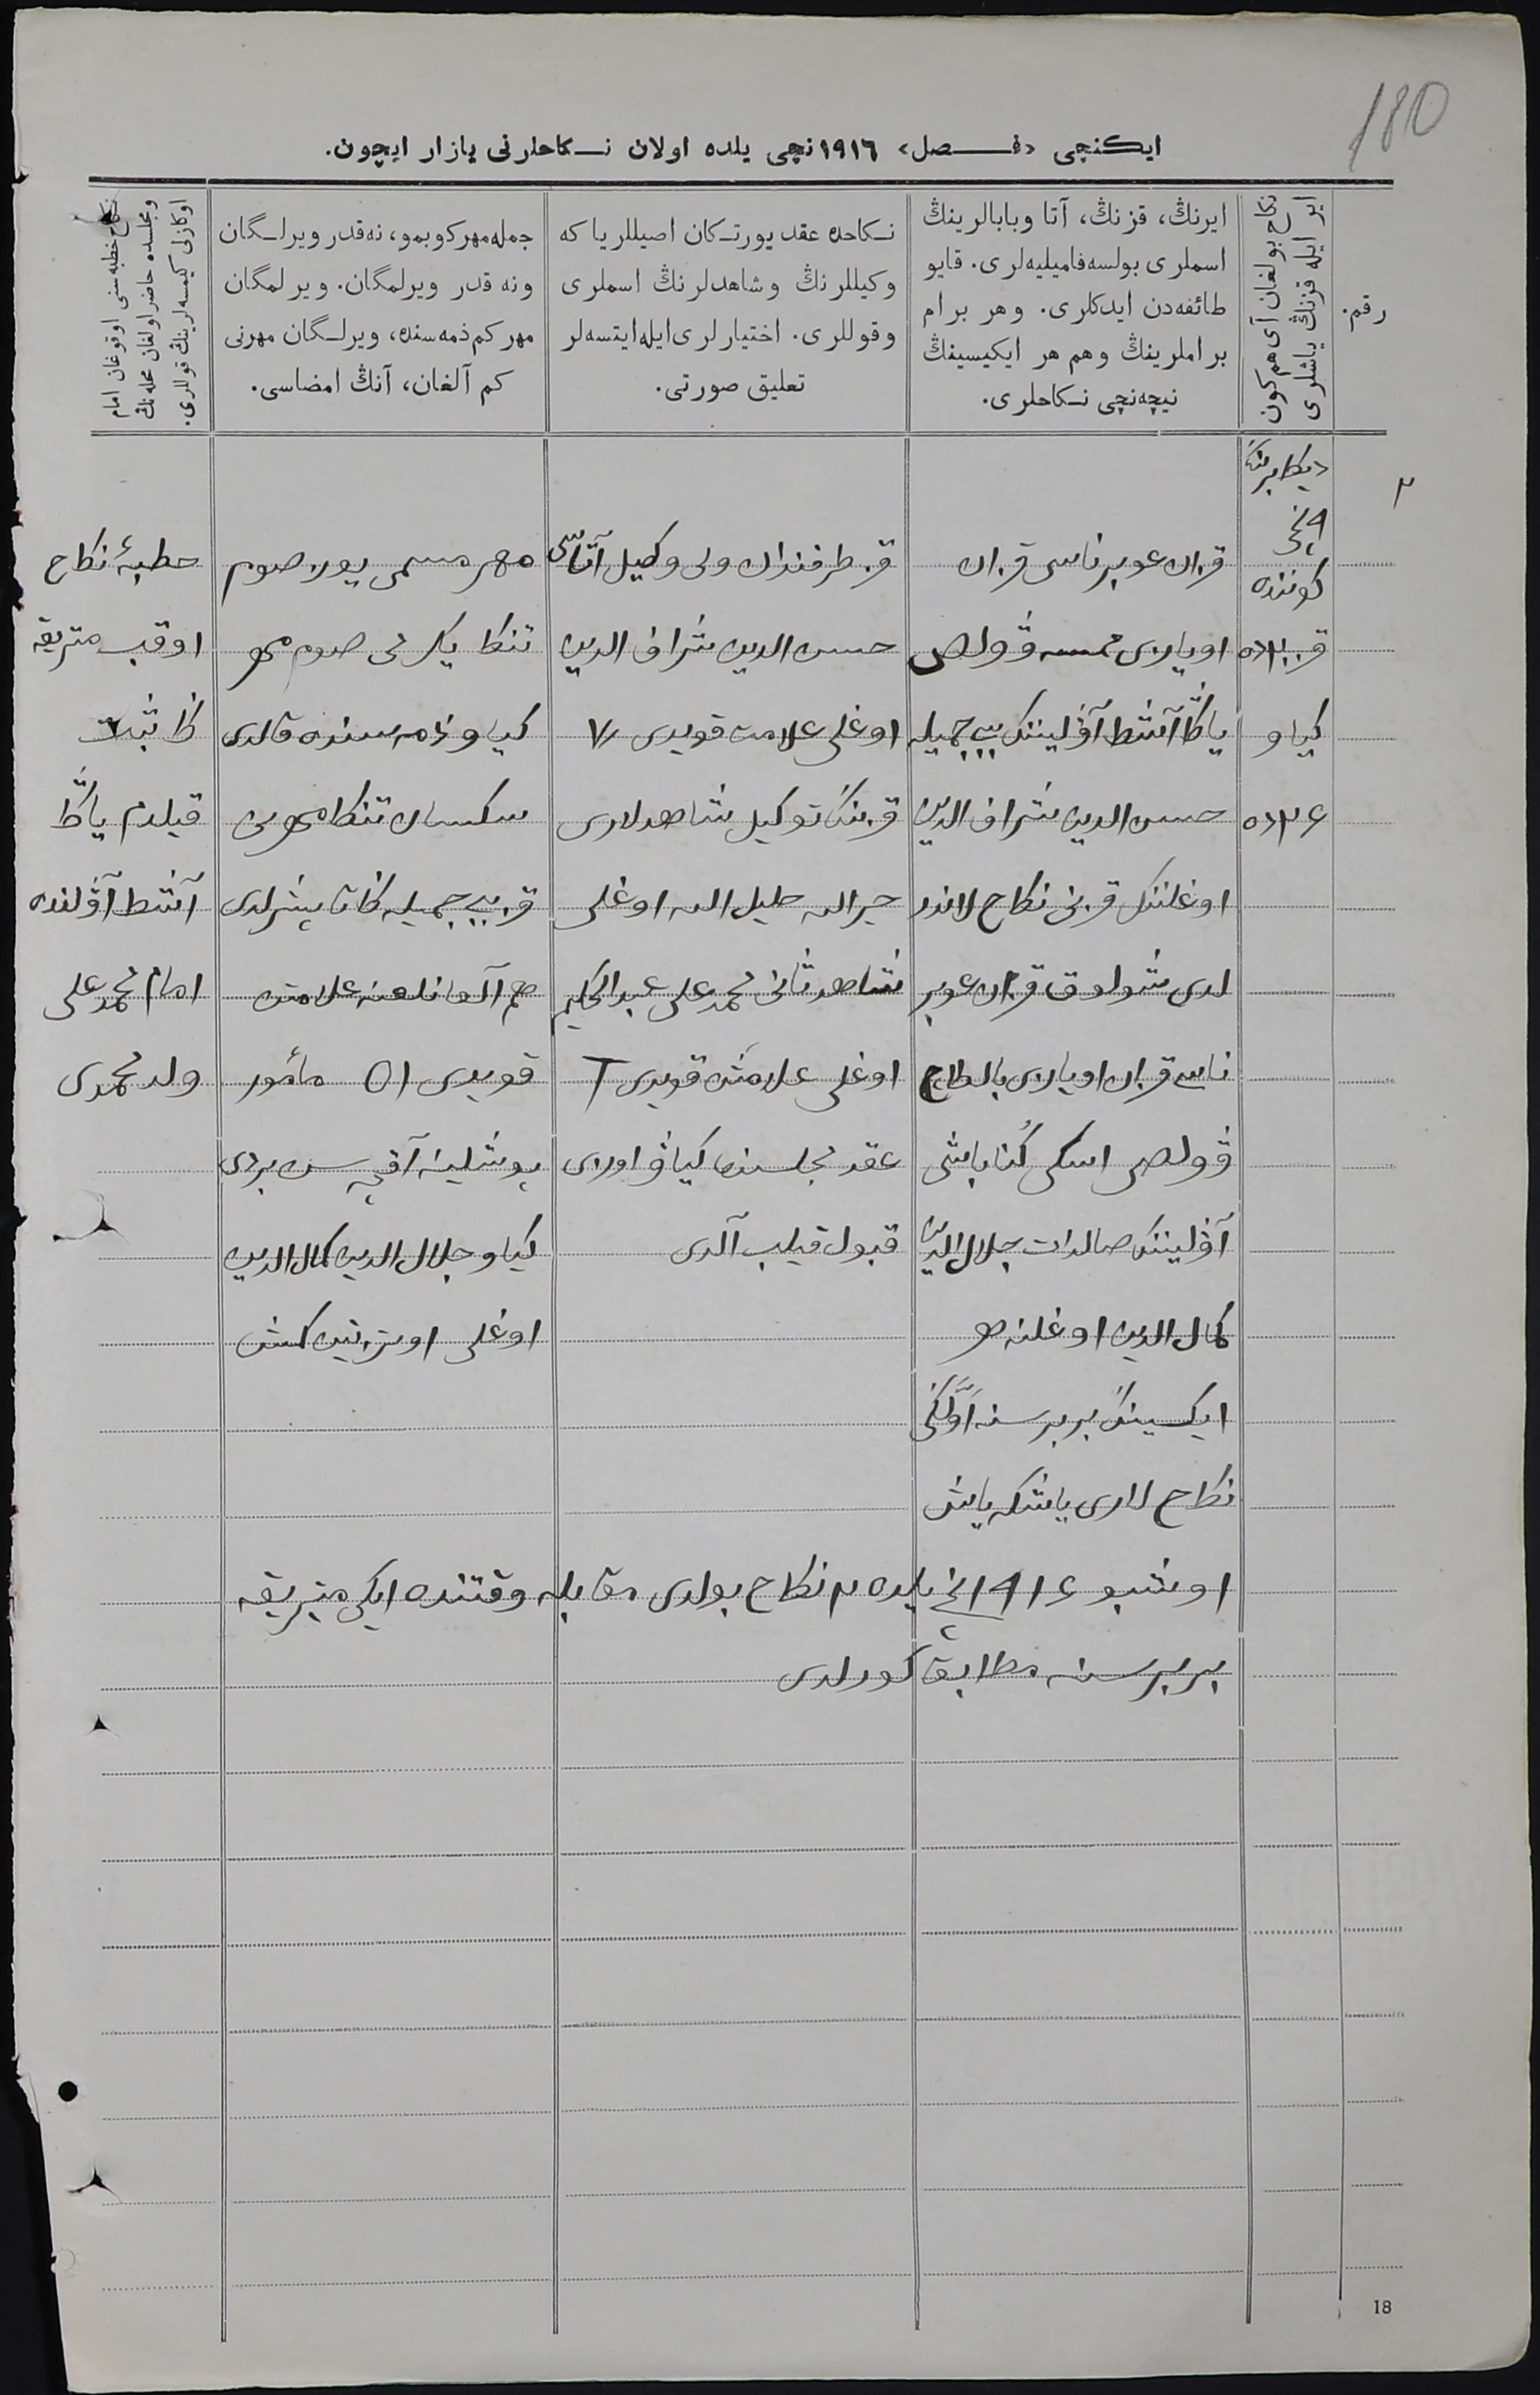 180
ایكنچی «فـصل» ١٩١٦نچی یلده اولان نـكاحلرنی یازار ایچون.
رقم.
نكاح بولغان آی هم كون
ایر ایله قزنڭ یاشلری
ایرنڭ، قزنڭ، آتا وبابالرینڭ
اسملری بولسه فامیلیه‌لری. قایو
طائفه‌دن ایدكلری. وهر برام
بر املرینڭ وهم هر ایكیسینڭ
نیچه‌نچی نـكاحلری.
نـكاحده عقد یورتـكان اصیللر یا كه
وكیللرنڭ وشاهدلرنڭ اسملری
وقوللری. اختیارلری ایله ایتسه‌لر
تعلیق صورتی.
جمله مهر كوبمو، نه‌قدر ویرلـگان
ونه قدر ویرلمگان. ویرلمگان
مهر كم ذمه‌سنده، ویرلـگان مهرنی
كم آلغان، آنڭ امضاسی.
نكاح خطبه‌سنی اوقوغان امام
ومجلسده حاضر اولغان محله‌نڭ
اوكازلی كیمسه‌لرینڭ قوللری.
٢
دیكابرنڭ
٩نچی
كوننده
قز ٢٠ده
كیاو
٢٦ده
قزان غوبرناسی قزان
اویازی فولص
یاڭا آشط آولیننڭ بی‌بی جمیله
حسن الدین شراف الدین
اوغلننڭ قزنی نكاح لاندر
لدی شولوق قزان غوبر
ناسی قزان اویازی بالطاچ
فولص اسكی كنا باشی
آولیننڭ صالدات جلال الدین
كمال الدین اوغلنه هر
ایكیسینڭ بر برسنه اوّلگی
نكاح لاری یاشكه یاش
قز طرفندان ولی وكیل آتاسی
حسن الدین شراف الدین
اوغلی علامت قویدی
قزننڭ توكیل شاهدلاری
خیرالله خلیل الله اوغلی
شاهد ثانی محمد علی عبدالحكیم
اوغلی علامتن قویدی T
عقد مجلسنده كیاو اوزی
قبول قیلب آلدی
مهر مسمی یوز صوم
تنكا یكرمی صوم مهر
كیاو ذمه‌سنده قالدی
سكسان تنكا مهرنی
قز بی‌بی جمیله كا تابشرلدی
هم آلغانلغنه علامتن
قویدی ١٥ مأمور
پوشلینه آقچه‌سن بردی
كیاو جلال الدین كمال الدین
اوغلی
خطبهٔ نكاح
اوقب متریقه
كا ثبت
قیلدم یاڭا
آشط آولنده
امام محمد علی
ولد محمدی
اوشبو ١٩١٦نچی یلده ٢ نكاح بولدی مقابله وقتنده ایكی متریقه
بر برسنه مطابق كورلدی
18